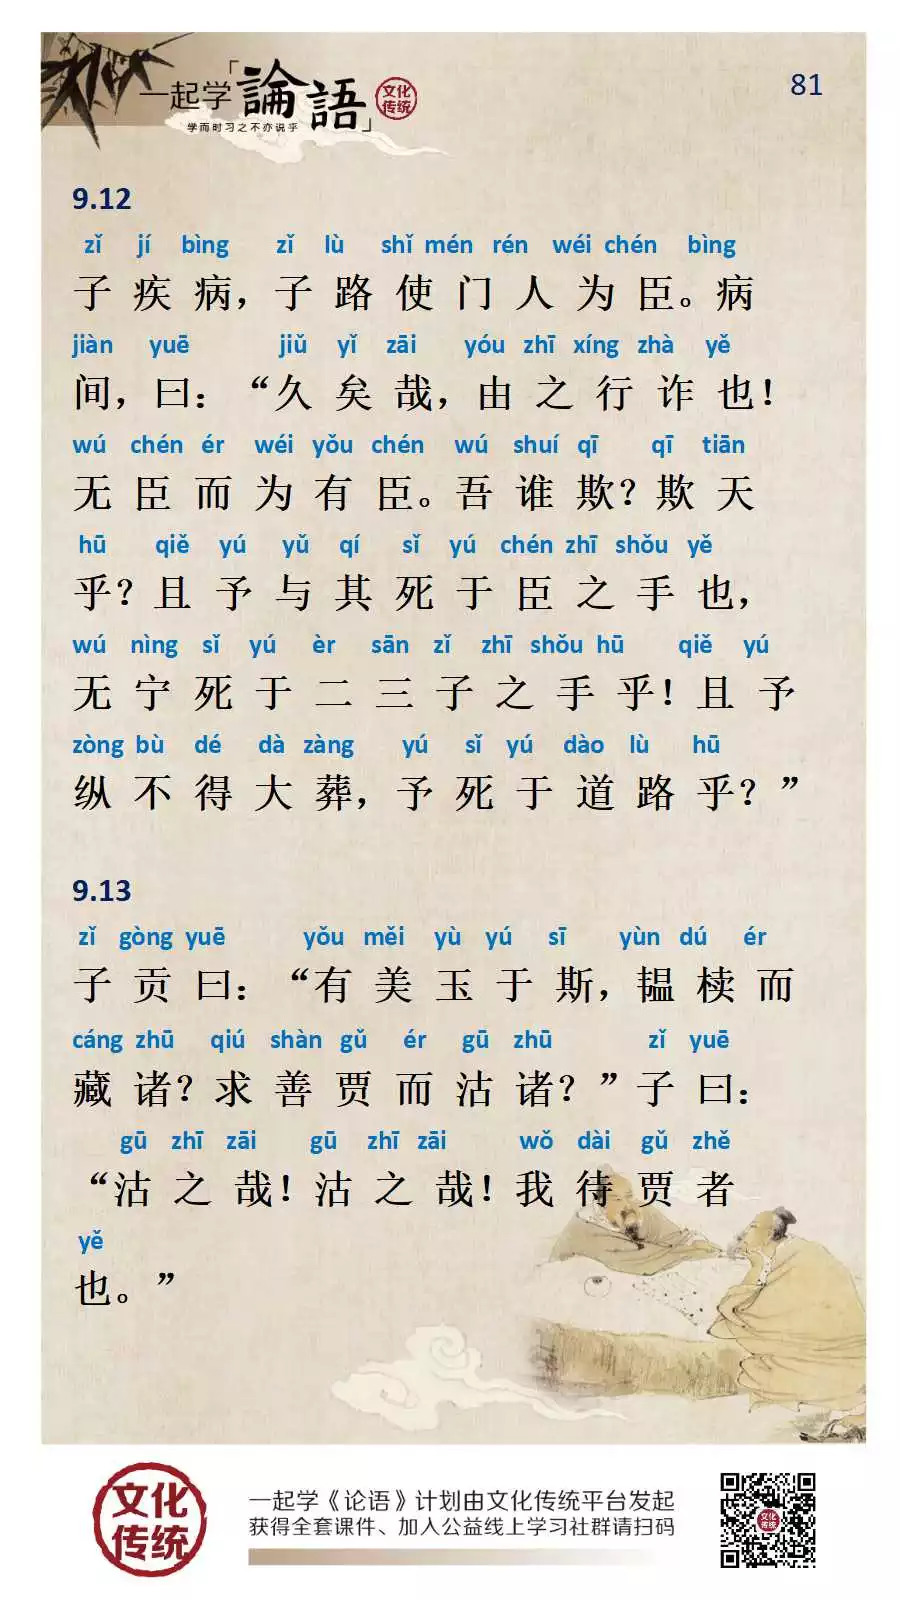 一起学「論語」
文化
传统
学而时习之不亦说乎
81
9.12
zǐ jí bìng zǐ lù shǐ mén rén wéi chén bìng
子疾病，子路使门人为臣。病
jiàn yuē jiǔ yǐ zāi yóu zhī xíng zhà yě
间，曰：“久矣哉，由之行诈也！
wú chén ér wéi yǒu chén wú shuí qī qī tiān
无臣而为有臣。吾谁欺？欺天
hū qiě yú yǔ qí sǐ yú chén zhī shǒu yě
乎？且予与其死于臣之手也，
wú nìng sǐ yú èr sān zǐ zhī shǒu hū qiě yú
无宁死于二三子之手乎！且予
zòng bù dé dà zàng yú sǐ yú dào lù hū
纵不得大葬，予死于道路乎？”
9.13
zǐ gòng yuē yǒu měi yù yú sī yùn dú ér
子贡曰：“有美玉于斯，韫椟而
cáng zhū qiú shàn gǔ ér gū zhū zǐ yuē
藏诸？求善贾而沽诸？”子曰：
gū zhī zāi gū zhī zāi wǒ dài gǔ zhě
“沽之哉！沽之哉！我待贾者
yě
也。”
文化
传统
一起学《论语》计划由文化传统平台发起
获得全套课件、加入公益线上学习社群请扫码
文化
传统